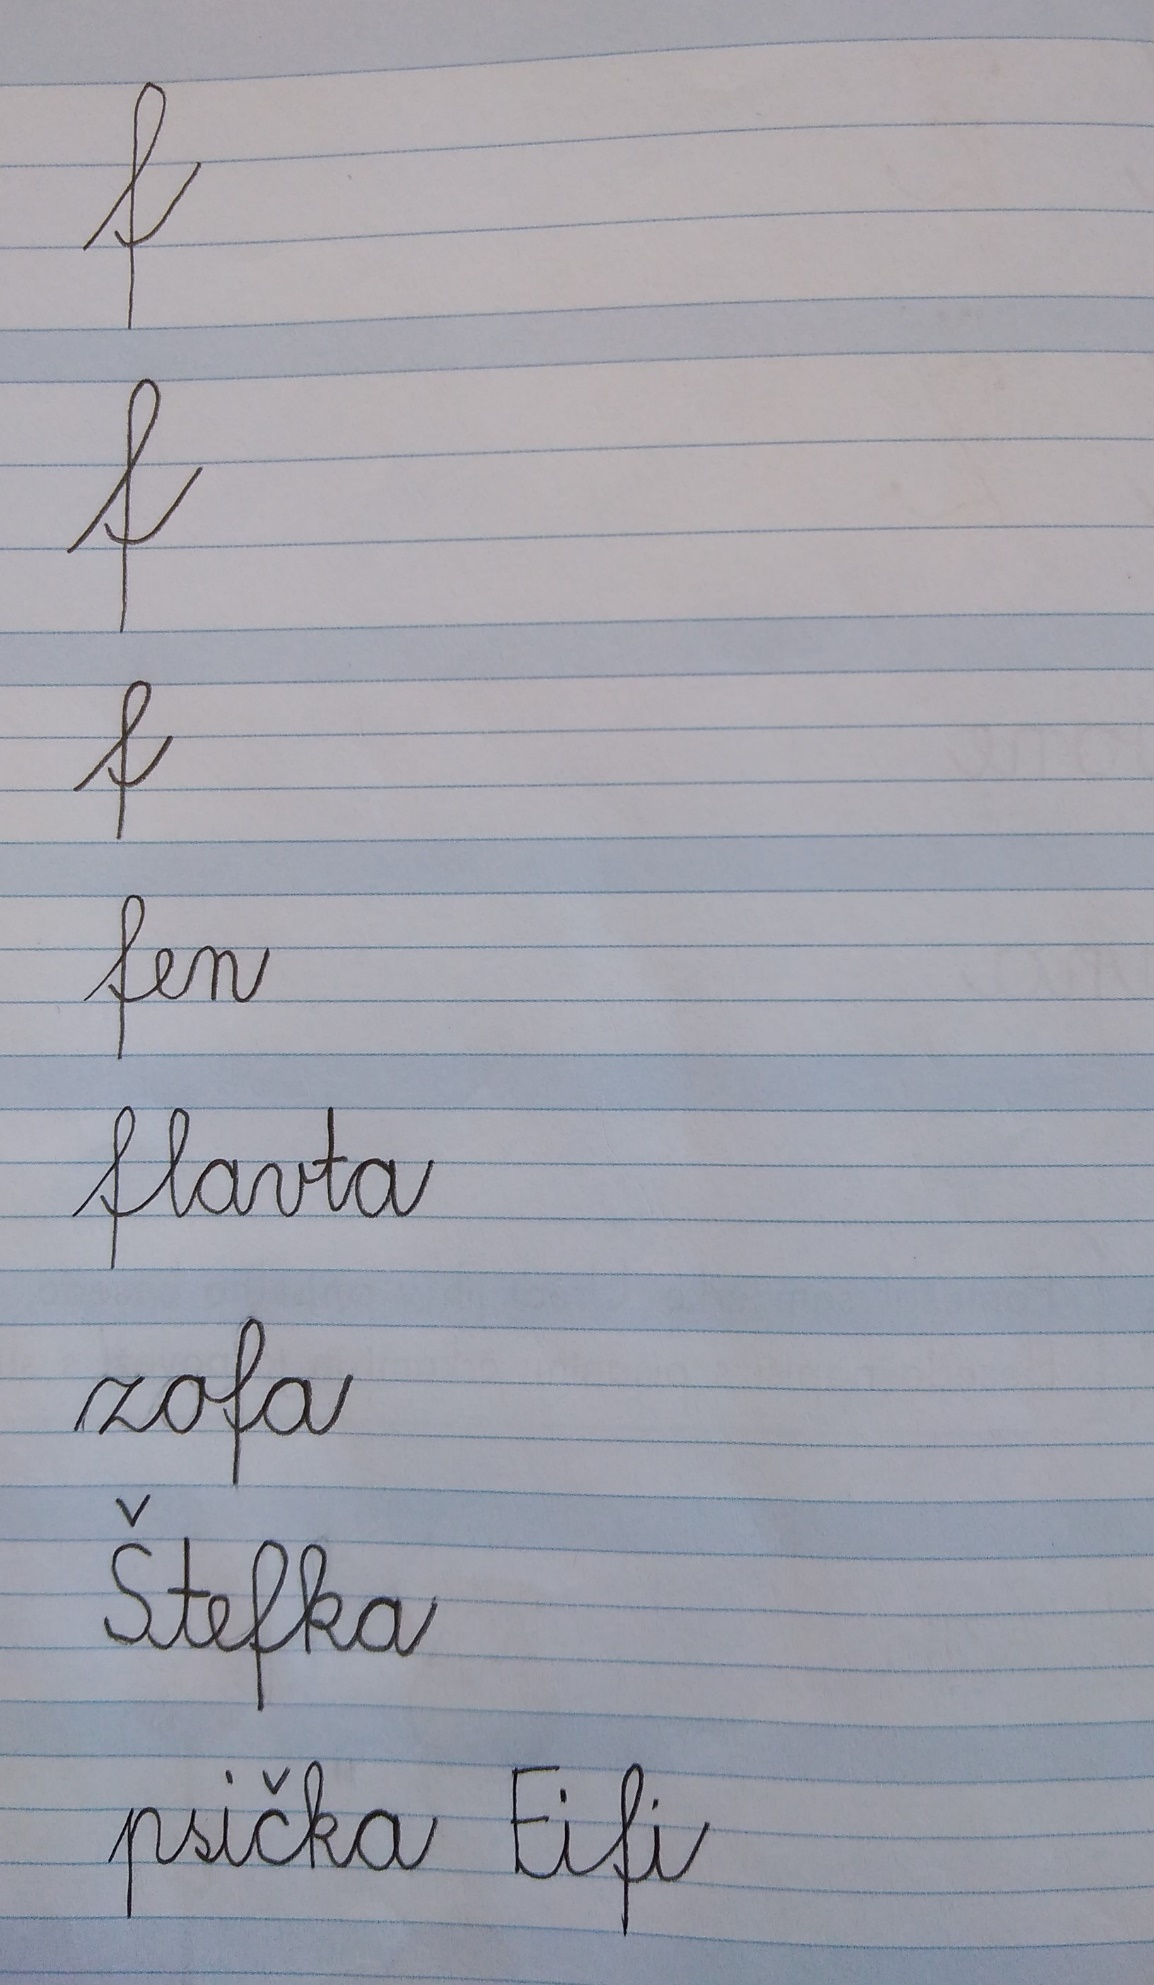 f
f
f
fen
flavta
zofa
Štefka
psička Eifi